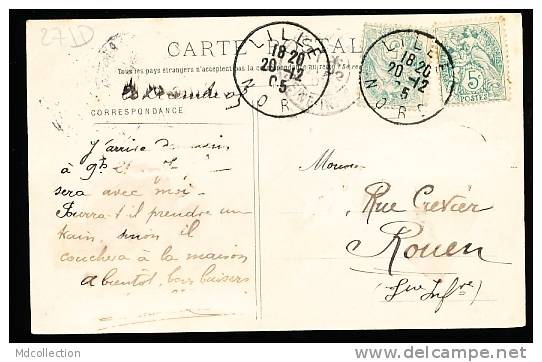 27 D
CARTE POSTALE
Tous les pays étrangers n'acceptent pas la correspondance au recto
CORRESPONDANCE
LILLE
18 20
20 -12
05
NORD
LILLE
18 20
20 -12
5
NORD
5c
POSTES
J'arrive
à 9h
sera avec moi.
Pourra-t-il prendre un
bain, sinon il
couchera à la maison
A bientôt, bons baisers
Rue Crevier
Rouen
(Sne Infre)
Mdcollection
www.delcampe.net